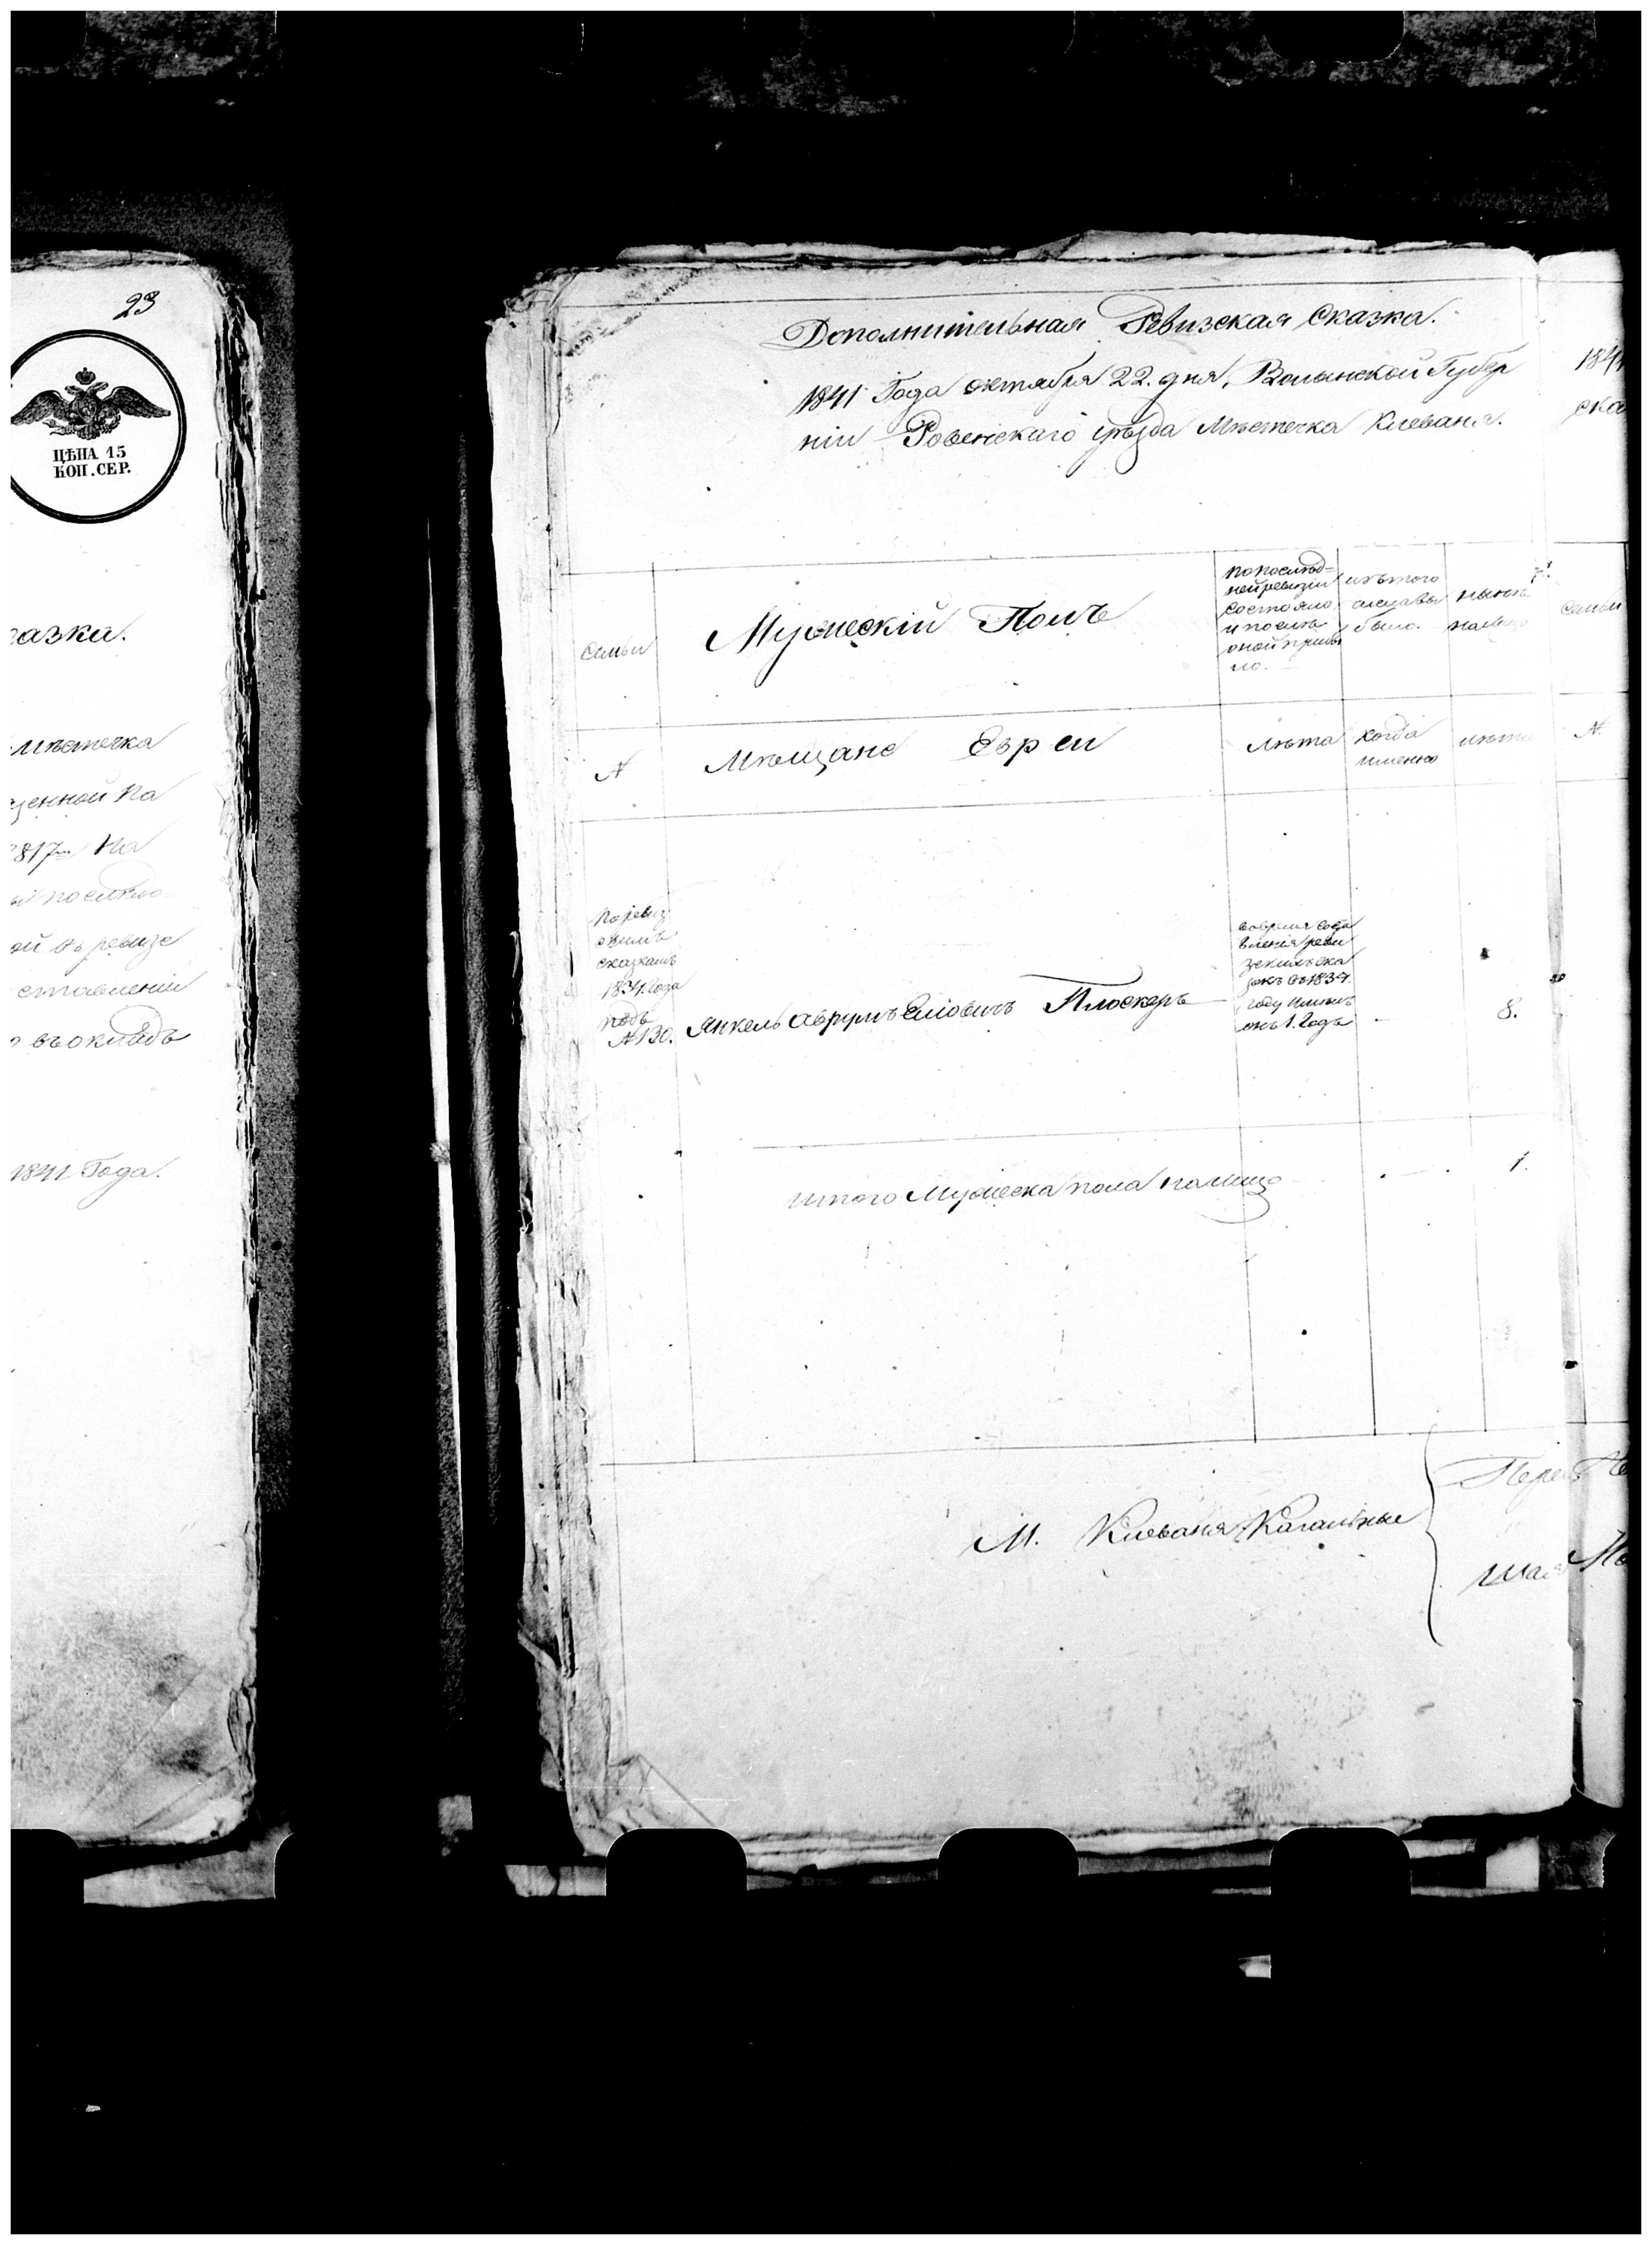 23
ЦѢНА 15
КОП. СЕР.
казка.
мѣстечка
зенной Па
817 На
ой въ ревизе
ставленіи
въ окладъ
1841 Года.
Дополнительная Ревизская Сказка.
1841 Года октября 22. дня, Волынской Губер
ніи Ровенскаго уѣзда Мѣстечка Клеваня.
Семьи
Мужескій Полъ
по послѣд=
ней ревизіи
состояло
и послѣ
оной прибы
ло.
изъ того
числа вы
было.
нынѣ
на лицо
№
Мѣщане Евреи
лѣта
когда
именно
лѣта
По ревиз
скимъ
сказкамъ
1834. Года
подъ
№ 130.
Янкель Аврумъ Еліовичъ Плоскеръ
во время соста
вленія реви
зскихъ ска
зокъ въ 1834.
году имѣлъ
онъ 1. Годъ
8.
Итого Мужеска пола на лицо
1.
М. Клеваня Кагальные
1841
ска
Семьи
№